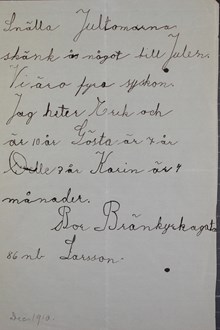 Snälla Jultomarna
skänk något till Julen.
Vi äro fyra syskon.
Jag heter Erik och
är 10 år Gösta är 7 år
Olle 7 år Karin är 4
månader.
Bor Bränkyrkagat.
86 nb Larsson.
Dec